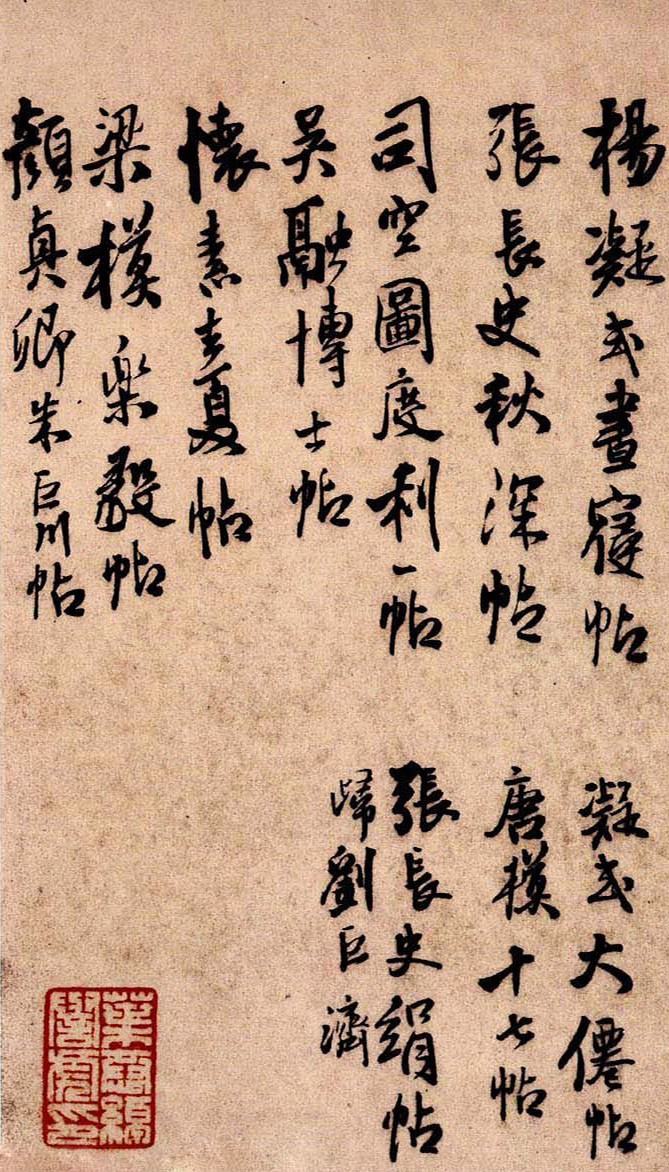 楊凝式晝寢帖
凝式大僊帖
張長史秋深帖
唐模十七帖
司空圖度利一帖
張長史絹帖
歸劉巨濟
吳融博士帖
懷素去夏帖
梁模樂毅帖
顏真卿朱巨川帖
葉恭綽
譽虎印